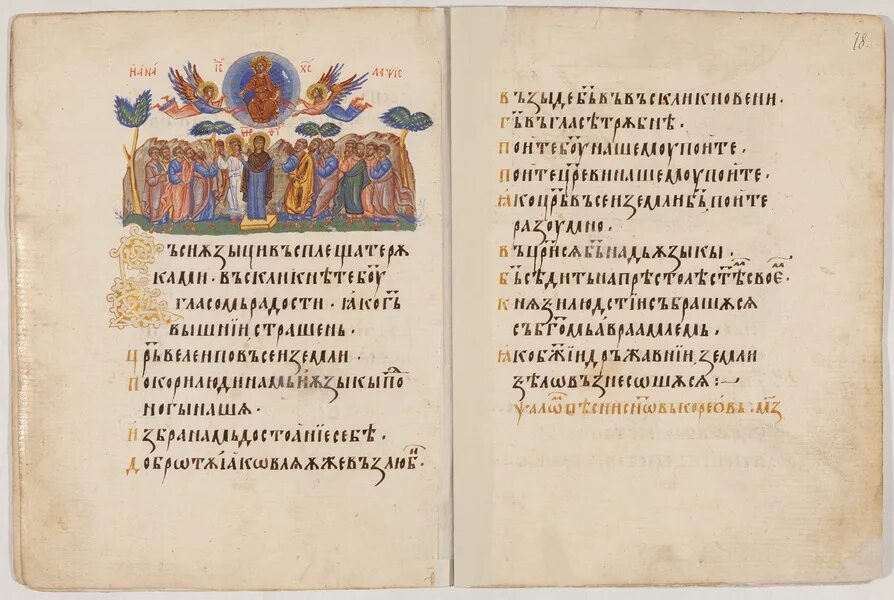 Η ΑΝΑ ΙС ХС ΛΑΨΙС
ΜΡ ΘΥ
Въси ѧзыци въсплещате рѫ
ками · въскликнѣте б҃оу
гласомь радости · ꙗко г҃ь
вышнїи страшень ·
Ц҃рь велеи по въсеи земли ·
Покори люди намь и ѧзыкы по͛
ногы нашѧ ·
Избра намь достоанїе себѣ ·
добротѫ їаковлѧ ѫже възлюби ·
78.
Възыде б҃ь въ въскликновени ·
г҃ь въ гласѣ трѫбнѣ ·
Поите б҃оу нашемоу поите ·
поите ц҃реви нашемоу поите ·
Ꙗко ц҃рь въсеи земли б҃ь поите
разоумно ·
Въц҃рисѧ б҃ь надь ѧзыкы ·
б҃ь сѣдить на прѣстолѣ ст҃ѣмь своемь ·
Кнѧзи людстїи събрашѫсѧ
съ б҃гомь авраамлемь ·
ꙗко б҃жїи дръжавнїи земли
ѕѣло възнесошѧсѧ :—
ѱалѡм пѣсни с҃новь кореовь · мз